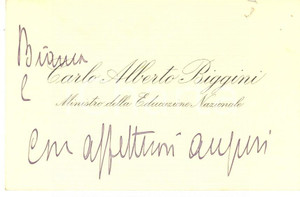 Bianca
e Carlo Alberto Biggini
Ministro della Educazione Nazionale
con affettuosi auguri